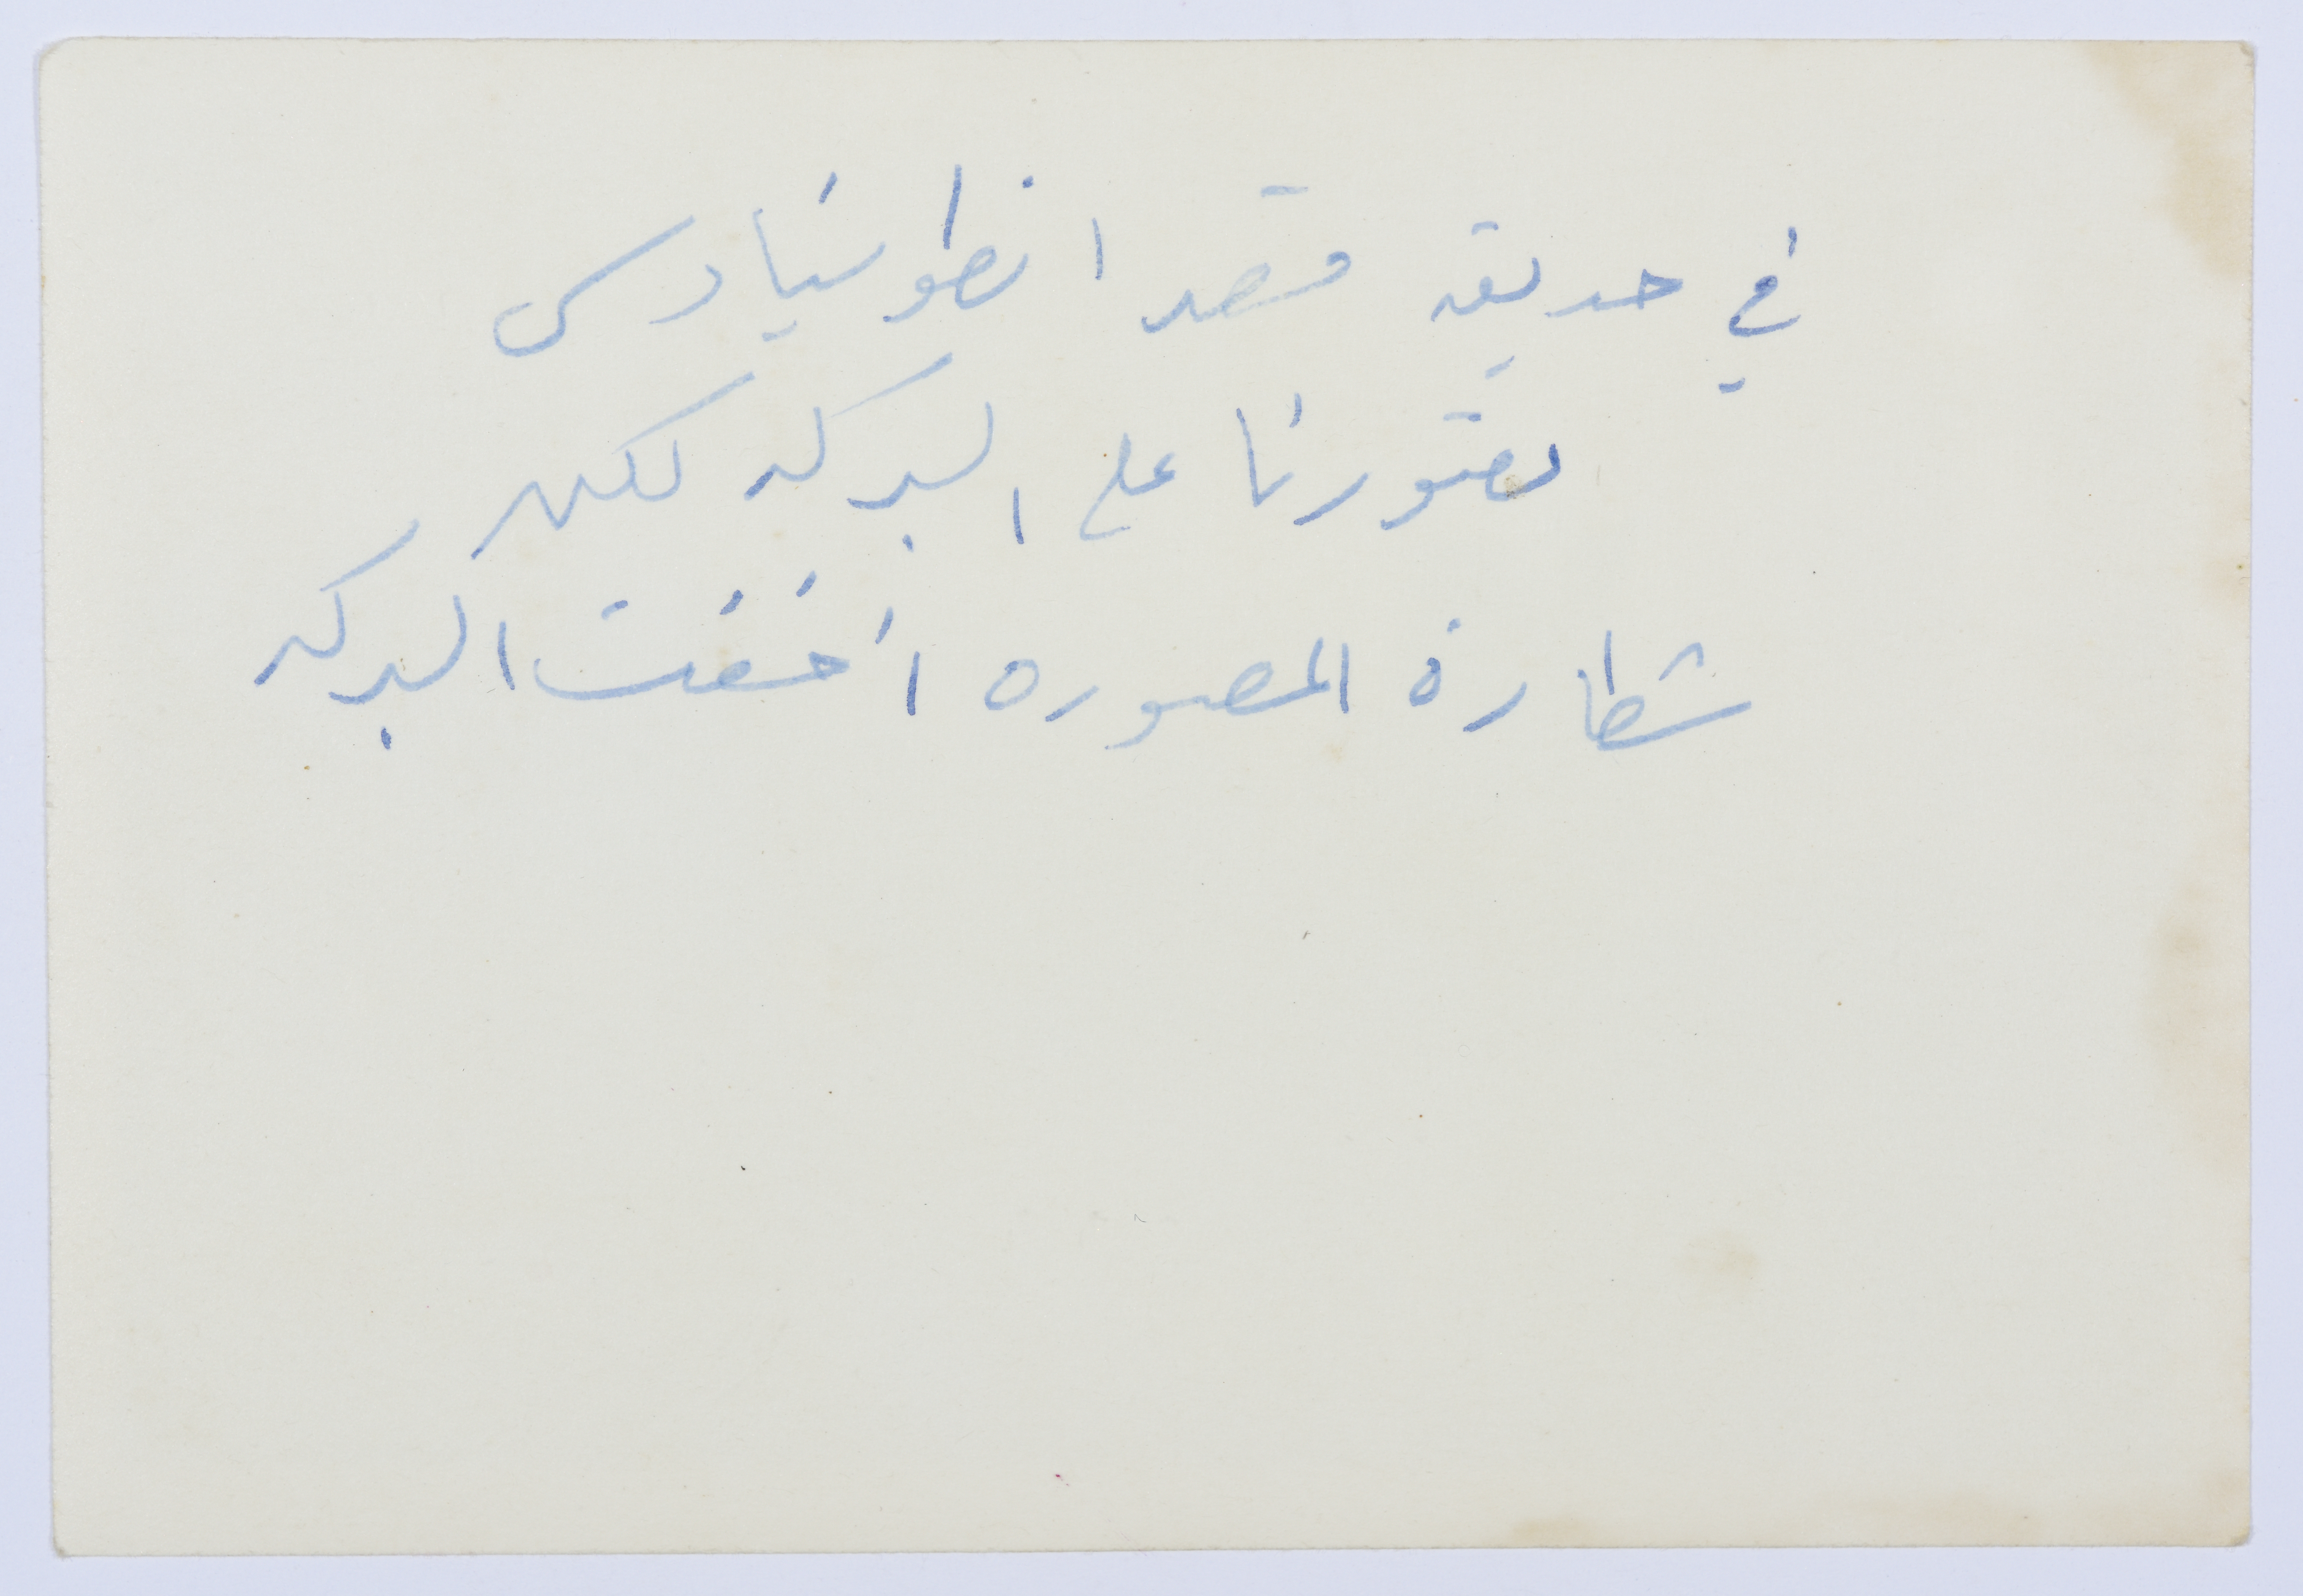 في حديقه قصر انطونيادس
تصورنا على البركه لكن
شطارة المصوره أخفت البركه